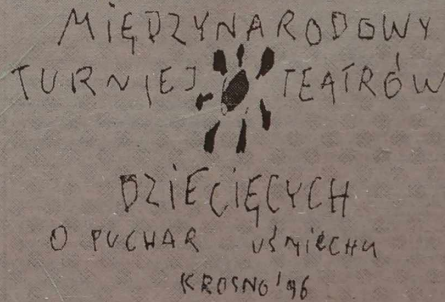 MIĘDZYNARODOWY
TURNIEJ TEATRÓW
DZIECIĘCYCH
O PUCHAR UŚMIECHU
KROSNO '96